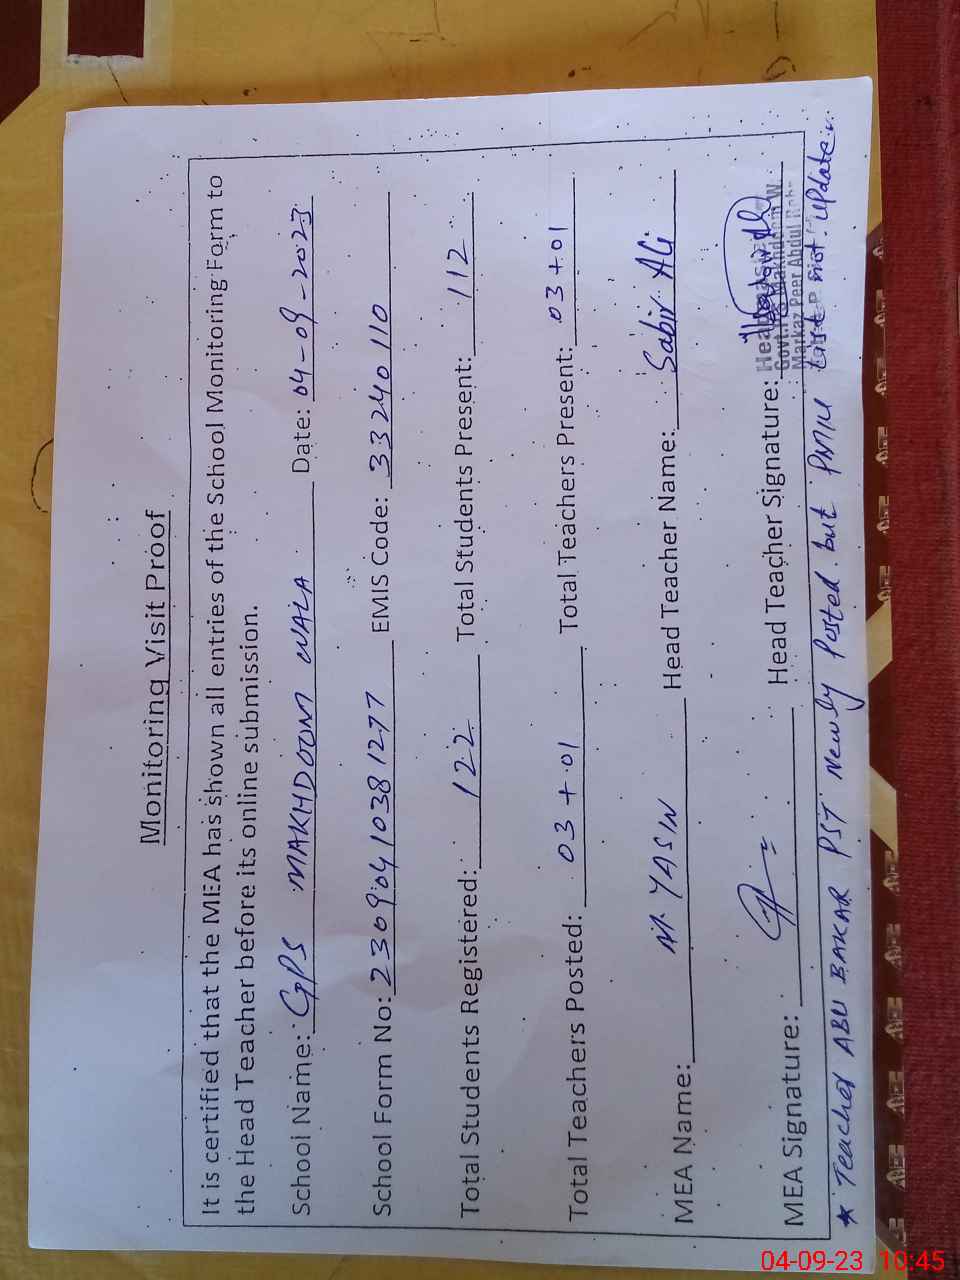 Monitoring Visit Proof
It is certified that the MEA has shown all entries of the School Monitoring Form to
the Head Teacher before its online submission.
School Name: GPS MAKHDOOM WALA Date: 04-09-2023
School Form No: 23090410381277 EMIS Code: 33240110
Total Students Registered: 122 Total Students Present: 112
Total Teachers Posted: 03+01 Total Teachers Present: 03+01
MEA Name: M. YASIN Head Teacher Name: Sabir Ali
MEA Signature: Head Teacher Signature:
Govt. P/S Makhdoom W.
Markaz Peer Abdul
* Teacher ABU BAKAR PST Newly Posted but PMIU List not update
04-09-23 10:45